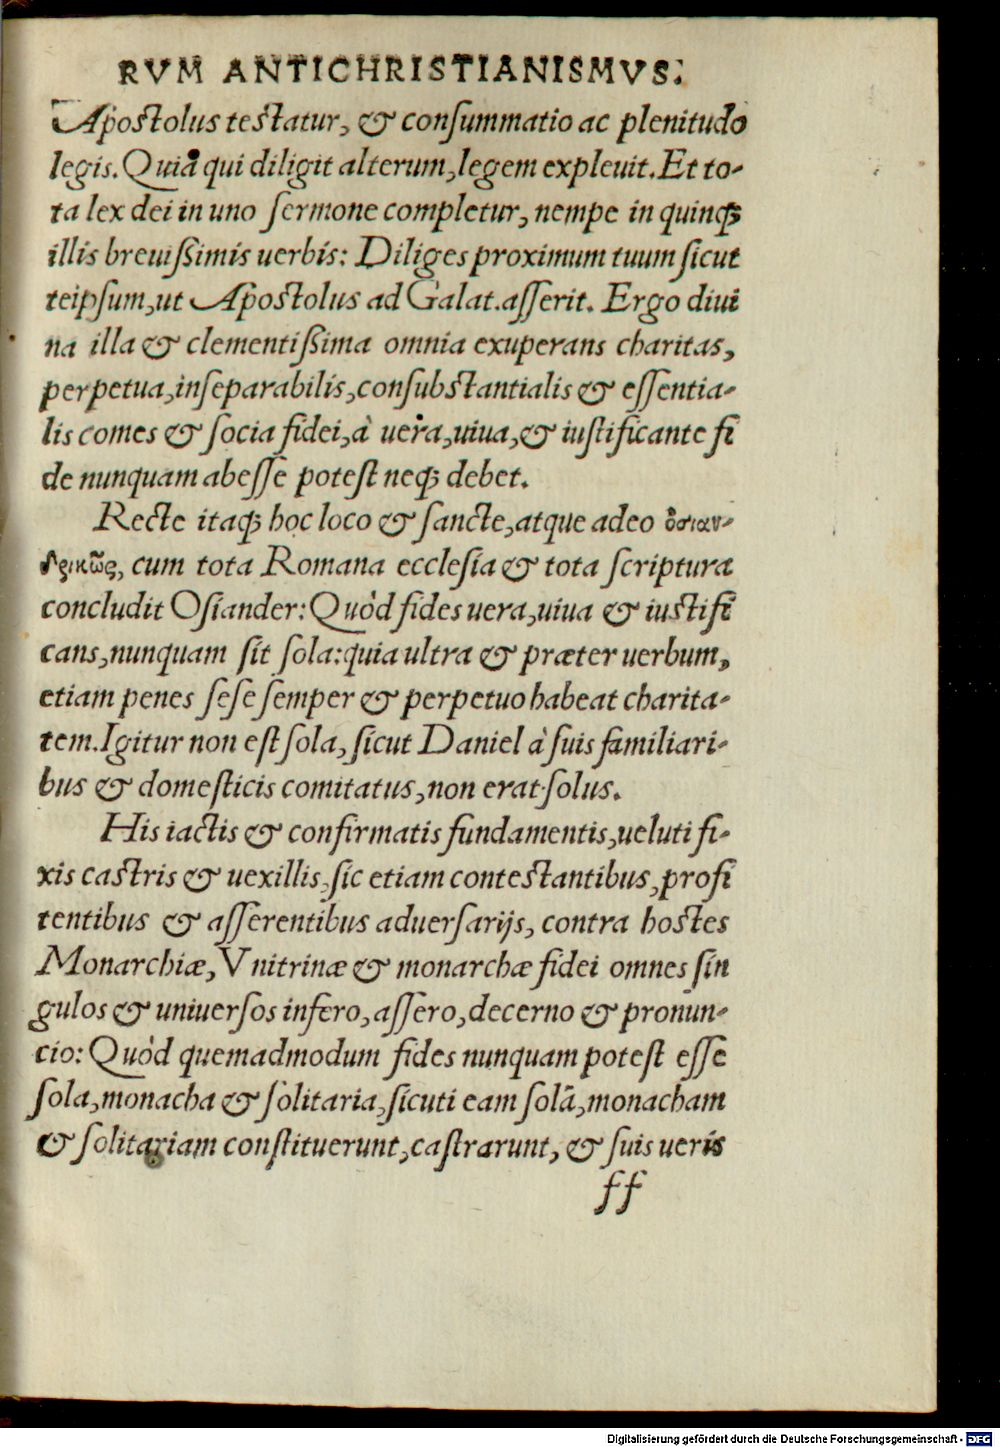 RVM ANTICHRISTIANISMVS.
Apoſtolus teſtatur, & conſummatio ac plenitudo
legis. Quia qui diligit alterum, legem expleuit. Et to-
ta lex dei in uno ſermone completur, nempe in quinqꝫ
illis breuiſſimis uerbis: Diliges proximum tuum ſicut
teipſum, ut Apoſtolus ad Galat. aſſerit. Ergo diui
na illa & clementiſſima omnia exuperans charitas,
perpetua, inſeparabilis, conſubſtantialis & eſſentia-
lis comes & ſocia fidei, à uera, uiua, & iuſtificante fi
de nunquam abeſſe poteſt neqꝫ debet.
Recte itaqꝫ hoc loco & ſancte, atque adeo ὀσιαν-
δρικῶς, cum tota Romana eccleſia & tota ſcriptura
concludit Oſiander: Quòd fides uera, uiua & iuſtifi
cans, nunquam ſit ſola: quia ultra & præter uerbum,
etiam penes ſeſe ſemper & perpetuo habeat charita-
tem. Igitur non eſt ſola, ſicut Daniel à ſuis familiari-
bus & domeſticis comitatus, non erat ſolus.
His iactis & confirmatis fundamentis, ueluti fi-
xis caſtris & uexillis, ſic etiam conteſtantibus, profi
tentibus & aſſerentibus aduerſarijs, contra hoſtes
Monarchiæ, Vnitrinæ & monarchæ fidei omnes ſin
gulos & uniuerſos infero, aſſero, decerno & pronun-
cio: Quòd quemadmodum fides nunquam poteſt eſſe
ſola, monacha & ſolitaria, ſicuti eam ſolā, monacham
& ſolitariam conſtituerunt, caſtrarunt, & ſuis ueris
ff
Digitalisierung gefördert durch die Deutsche Forschungsgemeinschaft - DFG